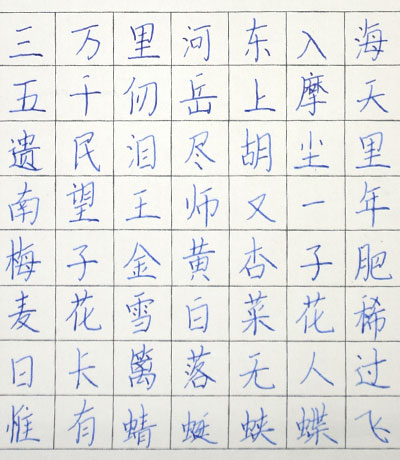 三万里河东入海
五千仞岳上摩天
遗民泪尽胡尘里
南望王师又一年
梅子金黄杏子肥
麦花雪白菜花稀
日长篱落无人过
惟有蜻蜓蛱蝶飞